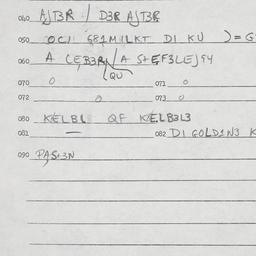 040 AJT3R / D3R AJT3R
050 OCII G81MILKT DI KU )= G
060 A CEB3R / A S+EF3LEJ94
QU
070 O 071 O
072 O 073 O
080 KELBL QF KELB3L3
081 — 082 DI GOLD1N3 K
090 PAS+3N